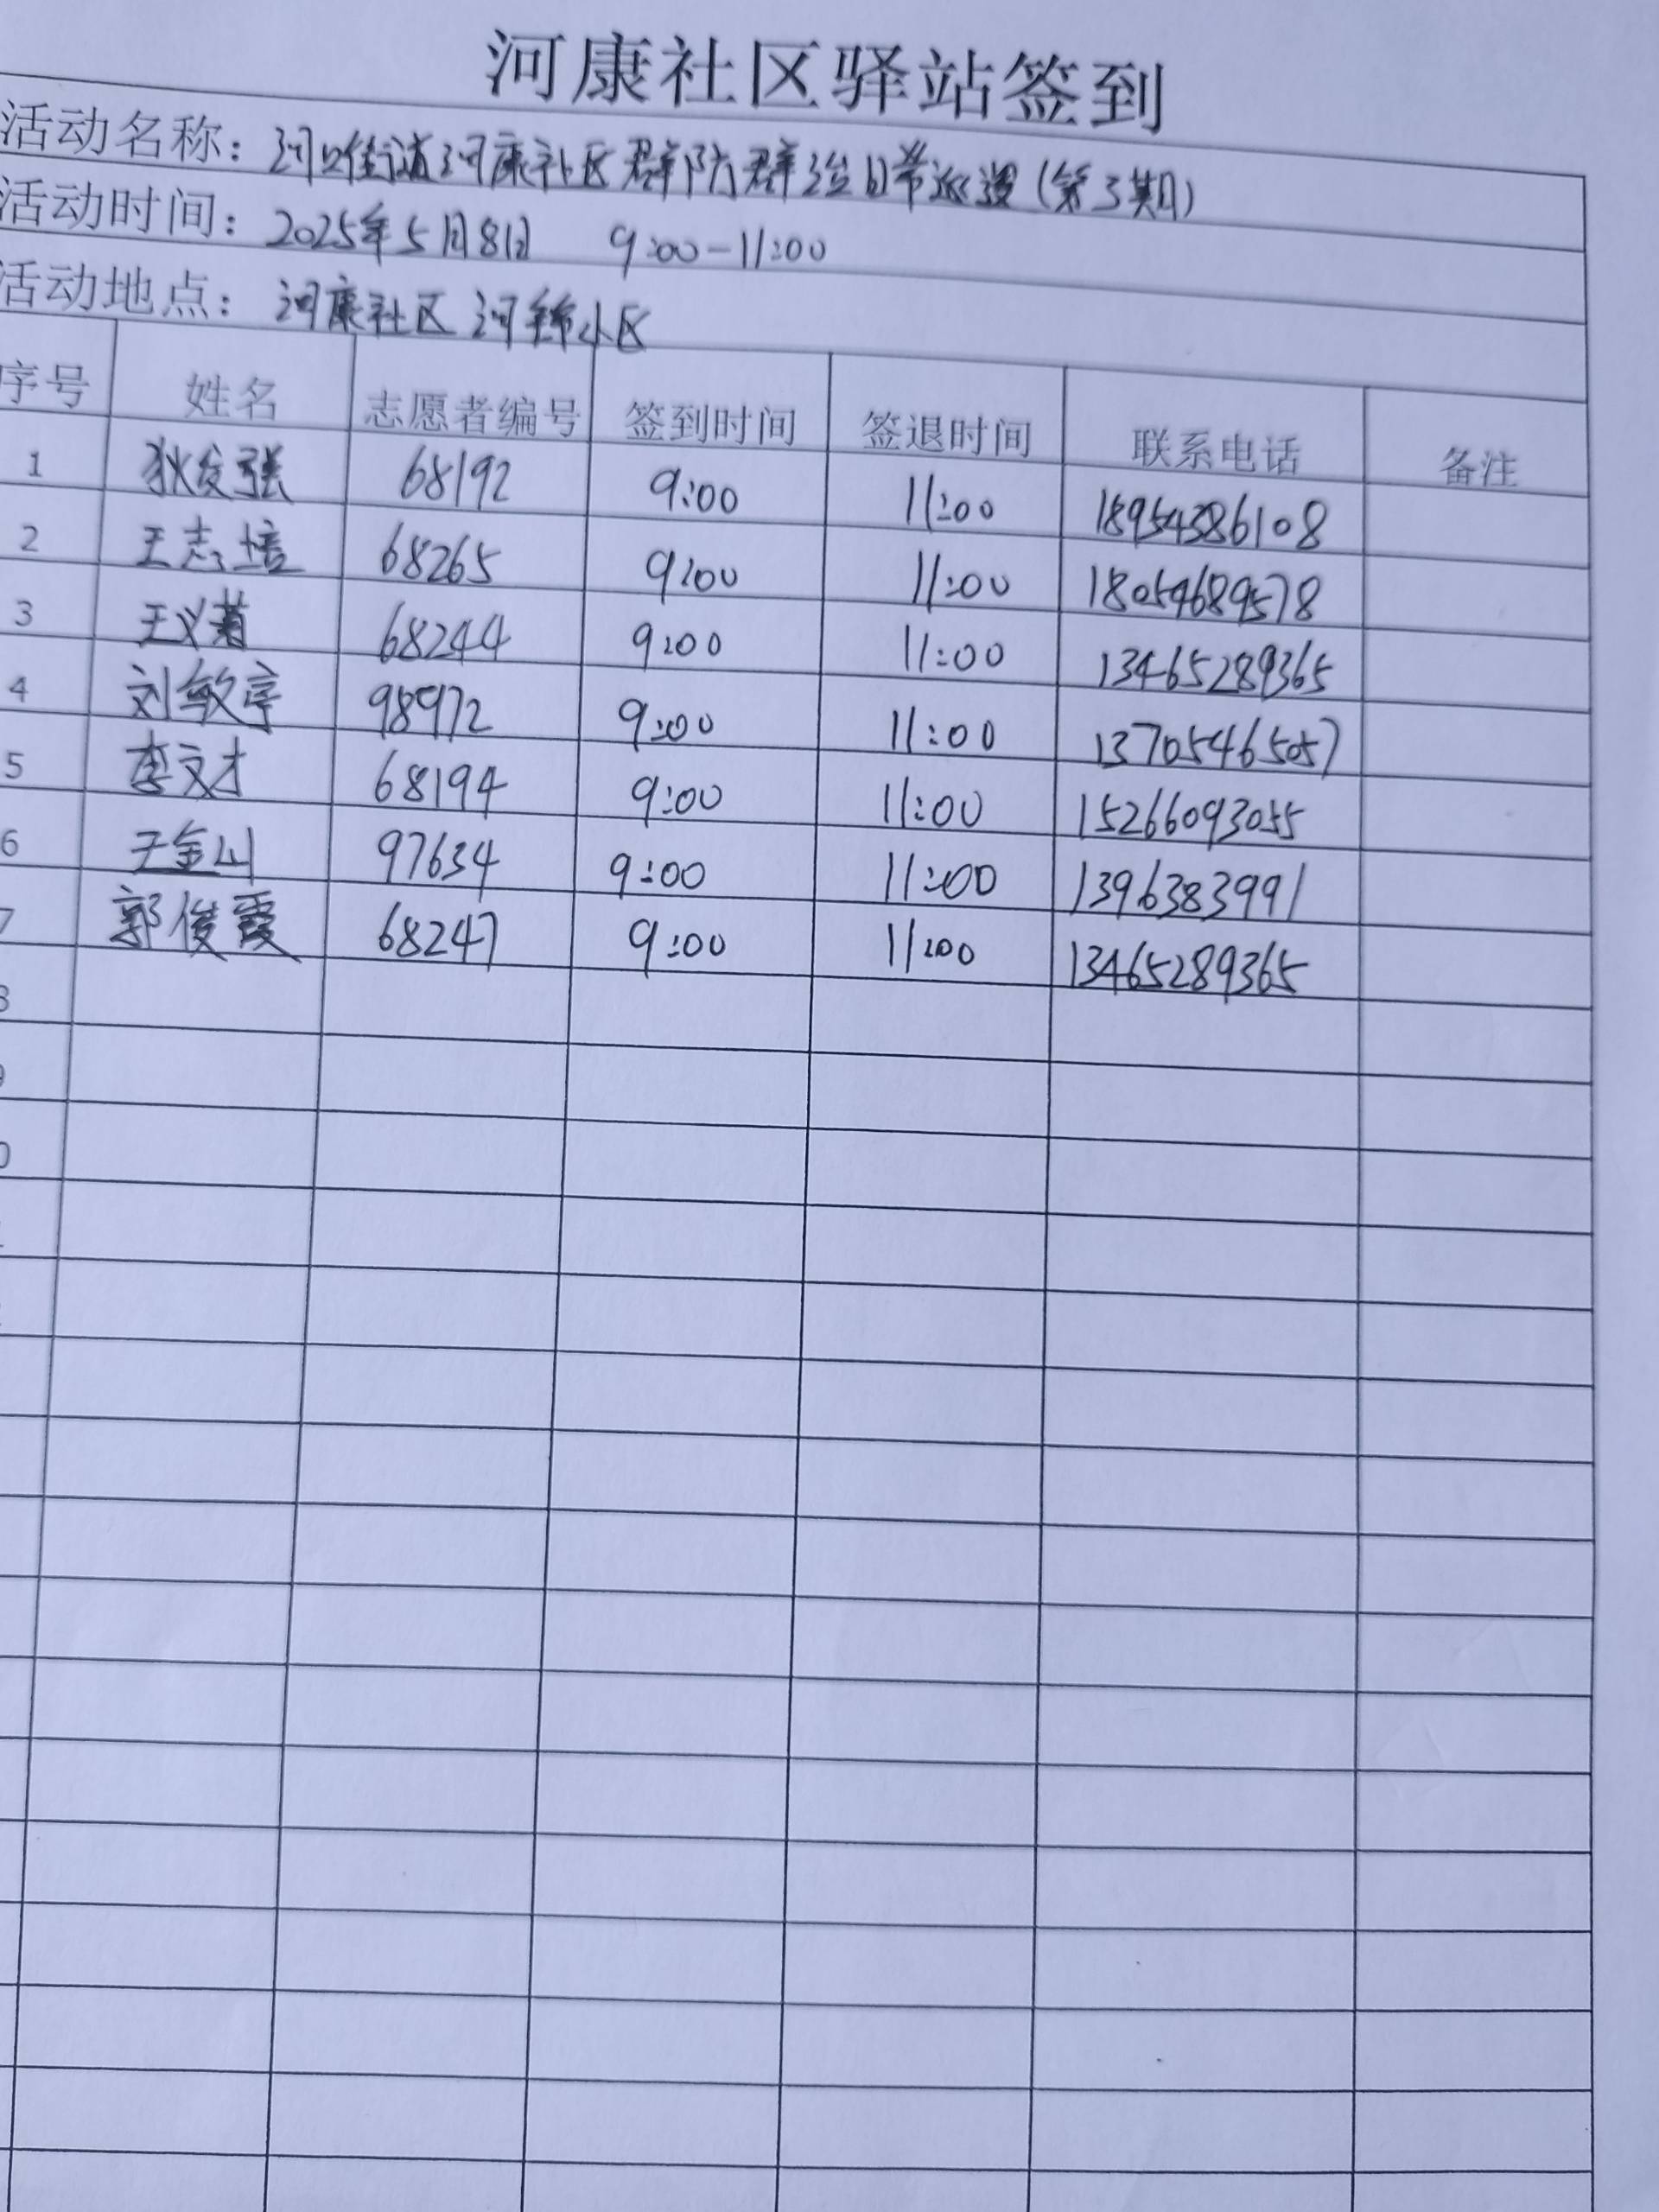 河康社区驿站签到
活动名称：河口街道河康社区群防群治日常巡逻（第3期）
活动时间：2025年5月8日 9:00-11:00
活动地点：河康社区 河 小区
序号 姓名 志愿者编号 签到时间 签退时间 联系电话 备注
1 狄发强 68192 9:00 11:00 18954386108
2 王志培 68265 9:00 11:00 18054689578
3 王义 68244 9:00 11:00 13465289365
4 刘敏亭 98972 9:00 11:00 13705465057
5 李文才 68194 9:00 11:00 15266093055
6 王金山 97634 9:00 11:00 1396383991
7 郭俊霞 68247 9:00 11:00 13465289365